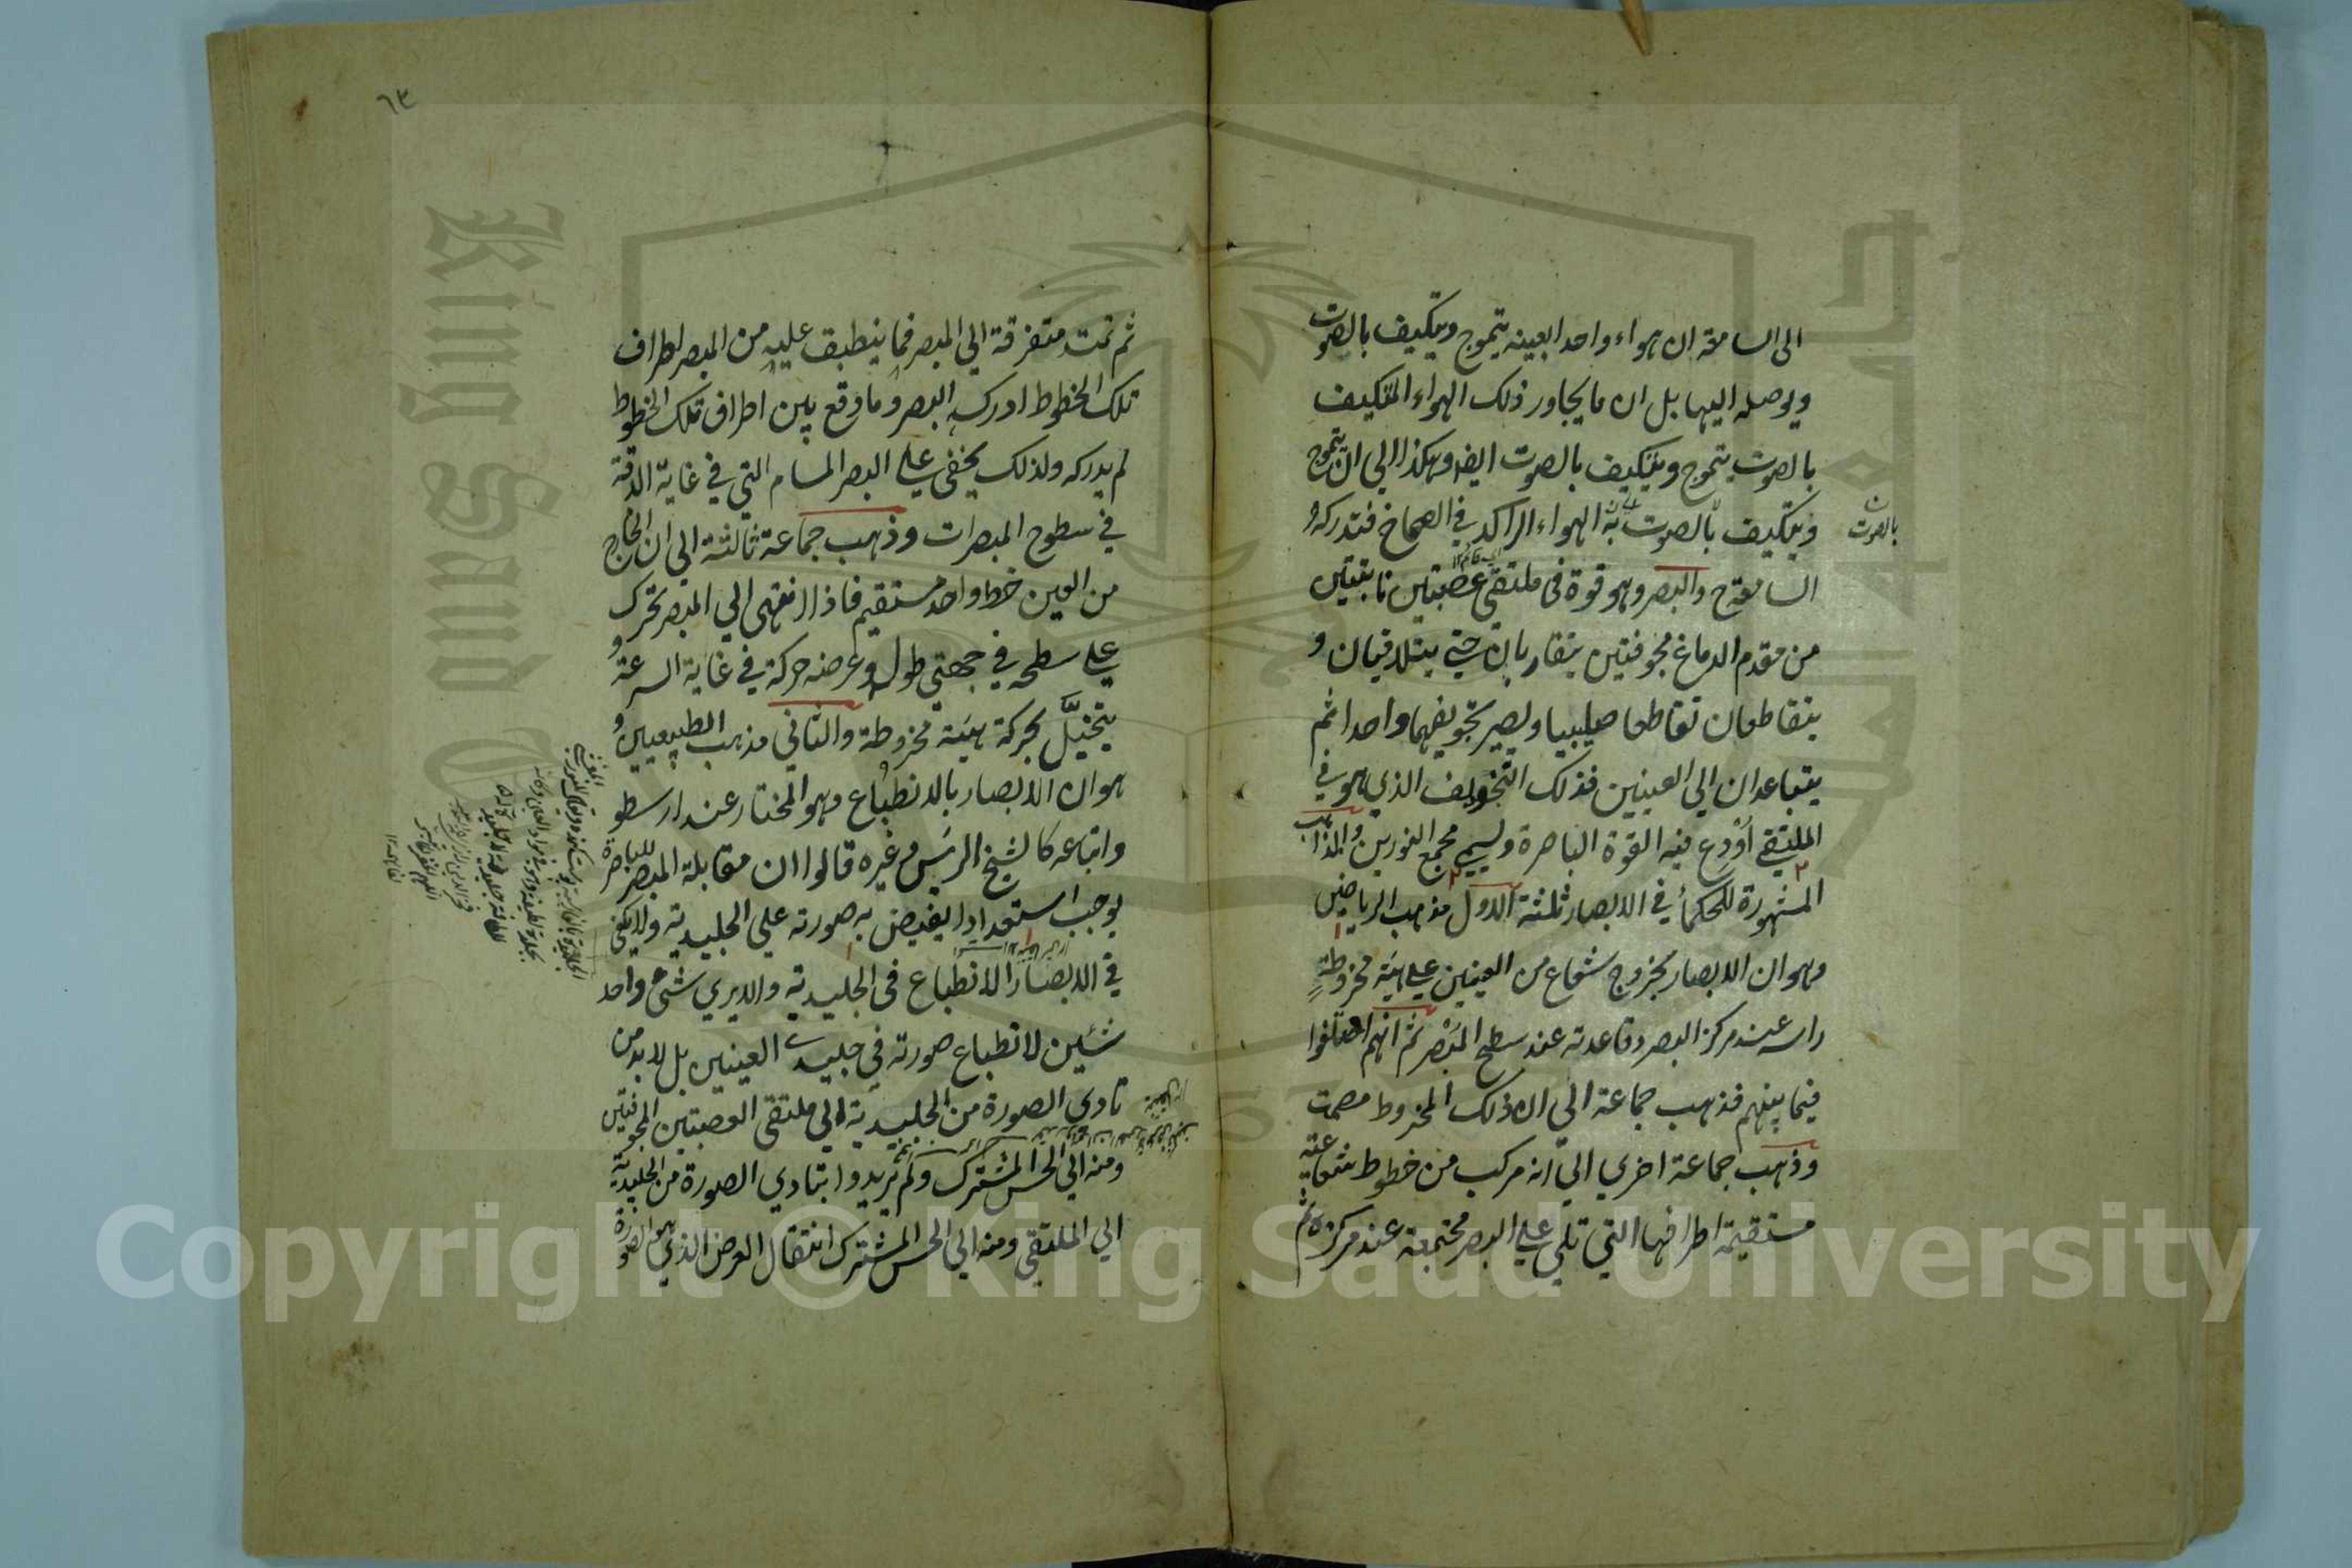 الى السامعة ان هواء واحدا بعينه يتموج ويتكيف بالصوت
ويوصله اليها بل ان ما يجاور ذلك الهواء المتكيف
بالصوت يتموج ويتكيف بالصوت ايضا وهكذا الي ان يتموج
ويتكيف بالصوت به الهواء الراكد في الصماخ فتدركه
بالصوت
السامعة ح والبصر وهو قوة في ملتقي عصبتين نابتتين
من مقدم الدماغ مجوفتين يتقاربان حتي يتلاقيان و
يتقاطعان تقاطعا صليبيا ويصير تجويفهما واحدا ثم
يتباعدان الي العينين فذلك التجويف الذي هو في
الملتقي اودع فيه القوة الباصرة ويسمي مجمع النورين والمذاهب
المشهورة للحكماء في الابصار ثلثة الاول مذهب الرياضيين
وهو ان الابصار بخروج شعاع من العينين علي هيئة مخروطة
راسه عند مركز البصر وقاعدته عند سطح المبصر ثم انهم اختلفوا
فيما بينهم فذهب جماعة الي ان ذلك المخروط مصمت
وذهب جماعة اخري الي انه مركب من خطوط شعاعية
مستقيمة اطرافها التي تلي علي البصر مجتمعة عند مركزه ثم
٦٣
ثم تمتد متفرقة الي المبصر فما ينطبق عليه من المبصر اطراف
تلك الخطوط ادركه البصر وما وقع بين اطراف تلك الخطوط
لم يدركه ولذلك يخفى علي البصر المسام التي في غاية الدقة
في سطوح المبصرات وذهب جماعة ثالثة الي ان الخارج
من العين خط واحد مستقيم فاذا انتهى الي المبصر تحرك
علي سطحه في جهتي طوله وعرضه حركة في غاية السرعة و
يتخيل بحركة هيئة مخروطة والثاني مذهب الطبيعيين و
هو ان الابصار بالانطباع وهو المختار عند ارسطو
واتباعه كالشيخ الرئيس وغيره قالوا ان مقابلة المبصر للباصرة
يوجب استعدادا يفيض به صورته علي الجليدية ولا يكفي
في الابصار الانطباع في الجليدية والا يري شئ واحد
شئين لانطباع صورته في جليدي العينين بل لابد من
تادي الصورة من الجليدية الي ملتقى العصبتين المجوفتين
ومنه الي الحس المشترك ولم يريدوا بتادي الصورة من الجليدية
الي الملتقي ومنه الي الحس المشترك انتقال العرض الذي هو الصورة
Copyright © King Saud University
King Saud